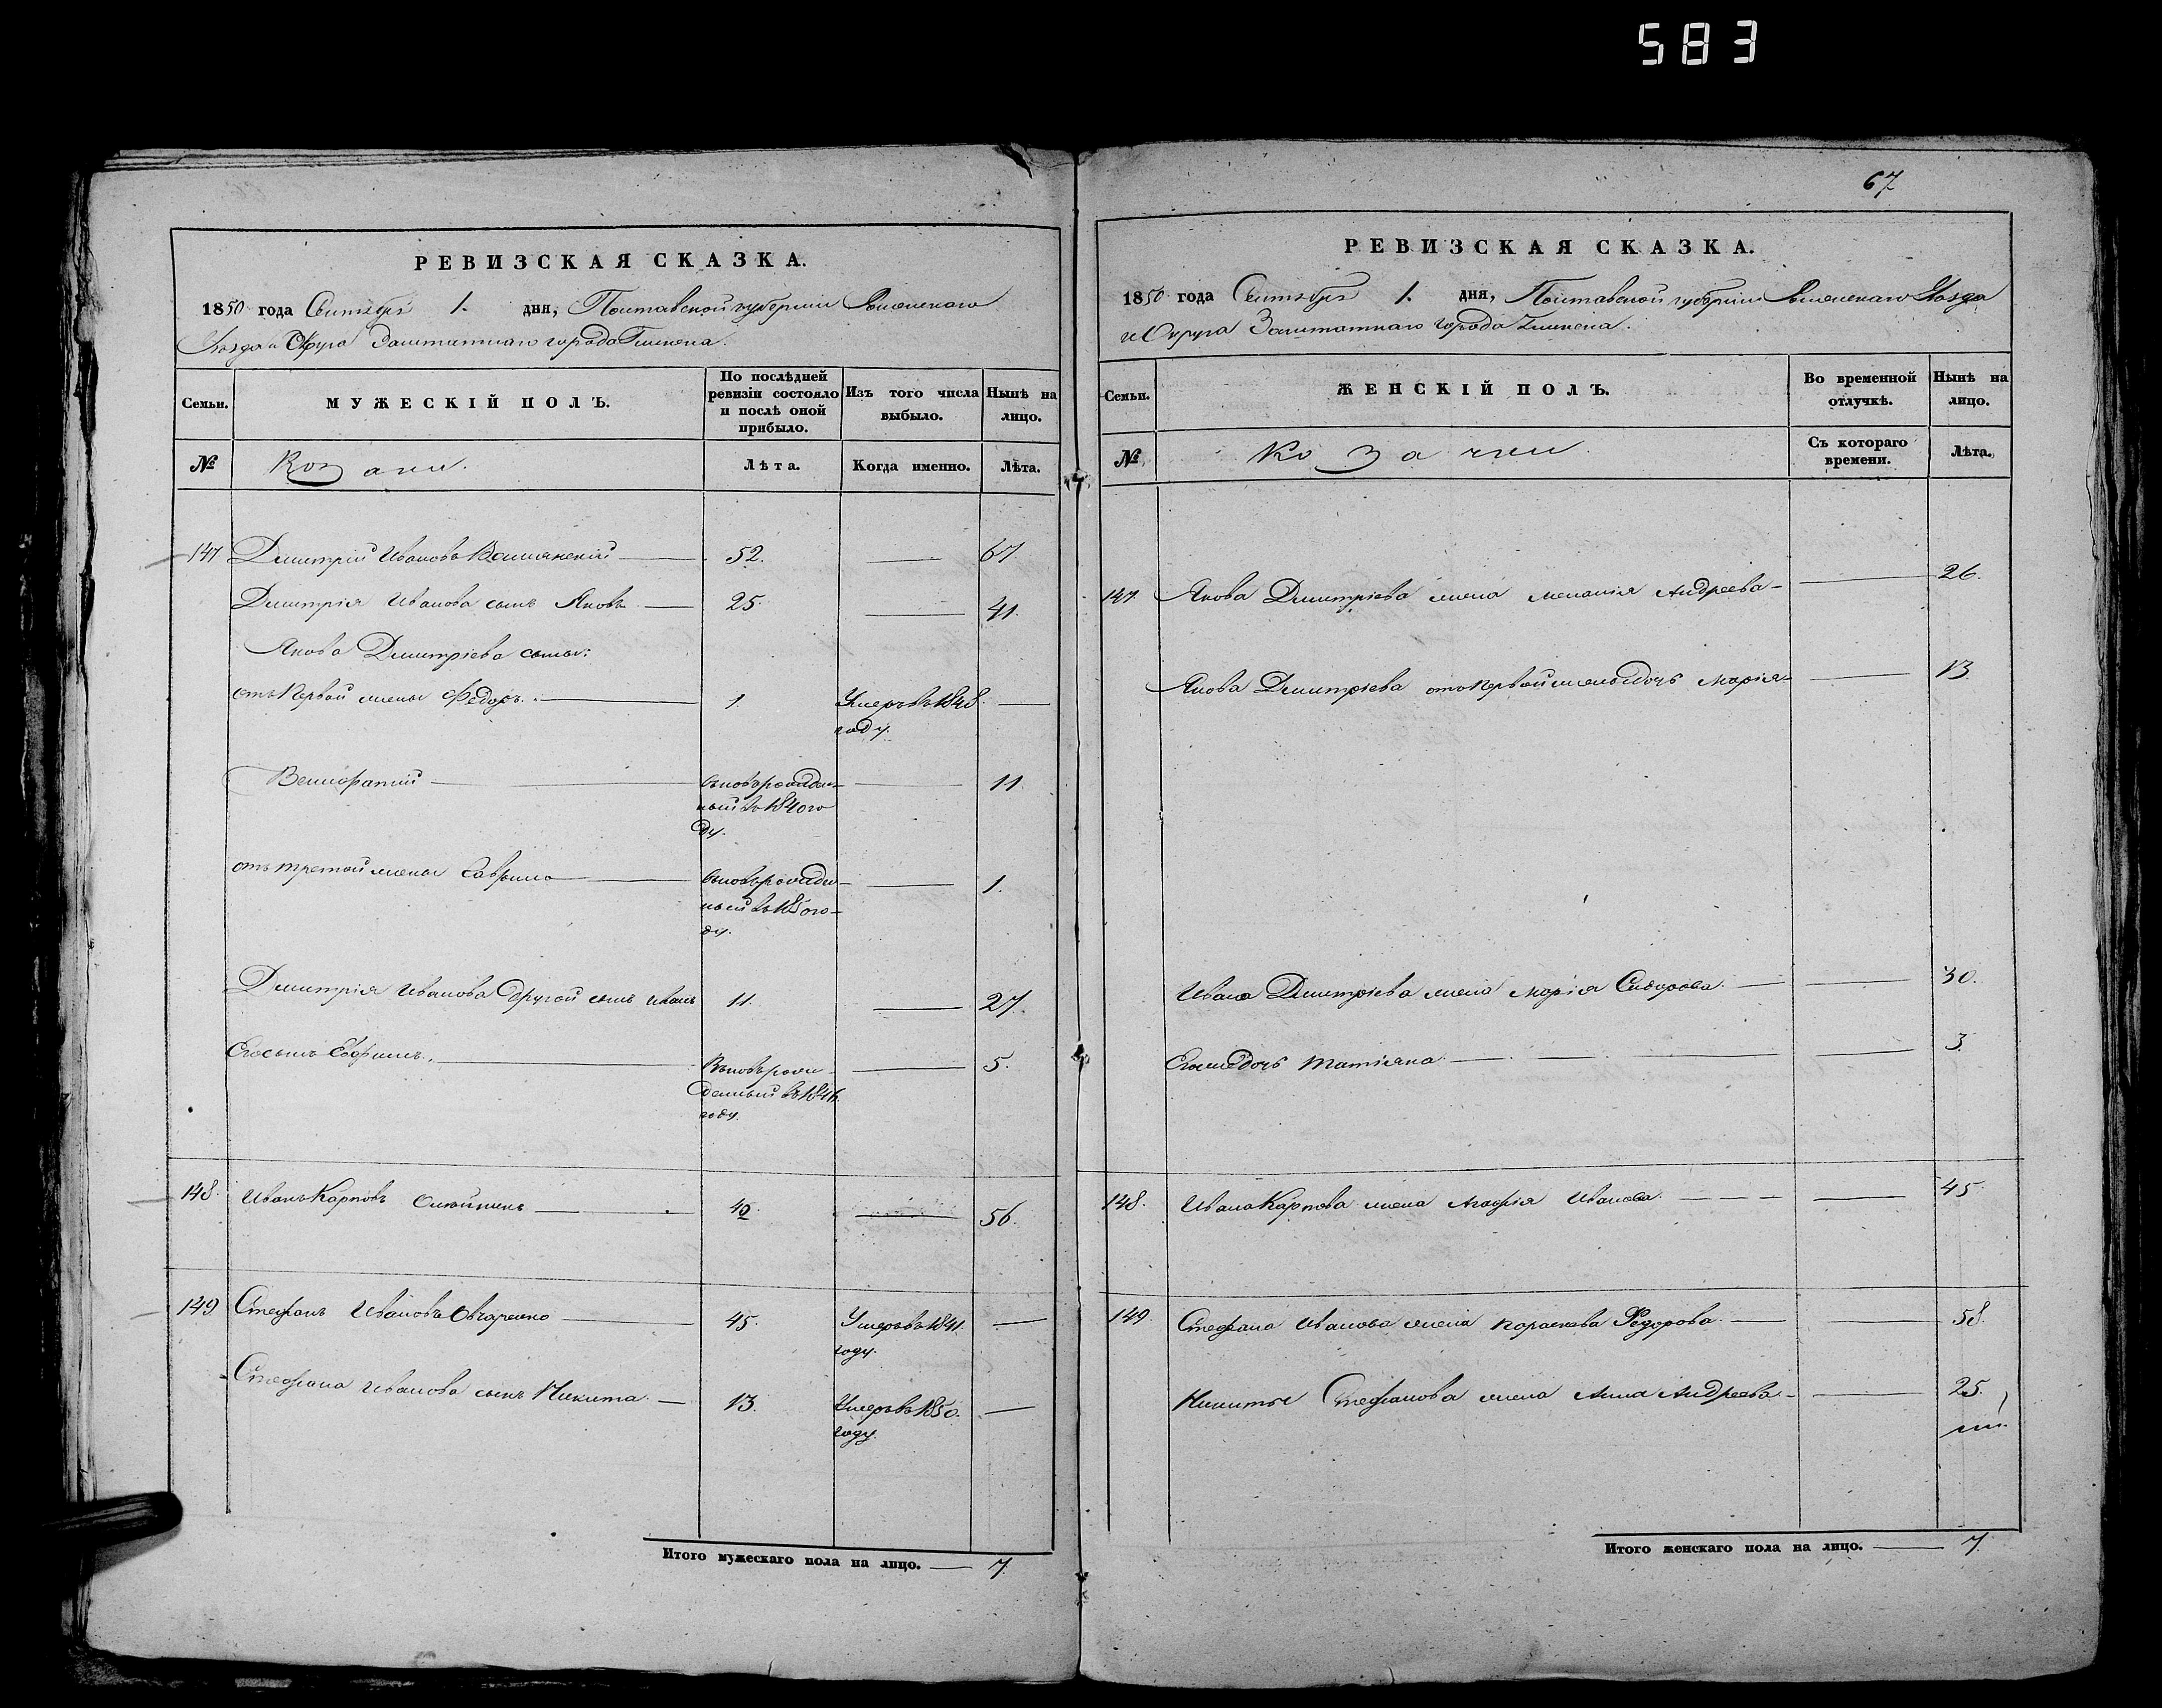 583
РЕВИЗСКАЯ СКАЗКА.
1850 года Сентября 1. дня, Полтавской губернии Роменскаго
Уѣзда и Округа Заштатнаго города Глинска.
Семьи.
МУЖЕСКІЙ ПОЛЪ.
По послѣдней ревизіи состояло и послѣ оной прибыло.
Изъ того числа выбыло.
Нынѣ на лицо.
№
Козаки.
Лѣта.
Когда именно.
Лѣта.
147 Дмитрій Ивановъ 52. 67
Дмитрія Иванова сынъ Яковъ 25. 41.
Якова Дмитріева сыны:
отъ Первой жены Федоръ. 1. Умеръ въ 1848
году.
11.
вновьрожден-
ный въ 1840 го
ду.
отъ третой жены 1.
вновьрожден-
ный въ 1850 го-
ду.
Дмитрія Иванова другой сынъ Иванъ 11. 27.
Его сынъ 5.
Вновьрож-
денный въ 1846
году.
148. Иванъ Карповъ 40. 56.
149 Стефанъ Ивановъ Овчаренко 45. Умеръ въ 1841.
году.
Стефана Иванова сынъ Никита. 13. Умеръ въ 1850.
году.
Итого мужескаго пола на лицо. 7.
67
РЕВИЗСКАЯ СКАЗКА.
1850 года Сентября 1. дня, Полтавской губерніи Роменскаго Уѣзда
и Округа Заштатнаго города Глинска.
Семьи.
ЖЕНСКІЙ ПОЛЪ.
Во временной отлучкѣ.
Нынѣ на лицо.
№
Козачки.
Съ котораго времени.
Лѣта.
147. Якова Дмитріева жена Меланія Андреева 26.
Якова Дмитріева отъ Первой жены дочь Марія 13
Ивана Дмитріева жена Марія Сидорова. 30.
Его же дочь Татіяна. 3.
148. Ивана Карпова жена Агафія Иванова. 45
149. Стефана Иванова жена Параскева Федорова. 58.
Никиты Стефанова жена Анна Андреева. 25.
Итого женскаго пола на лицо. 7.